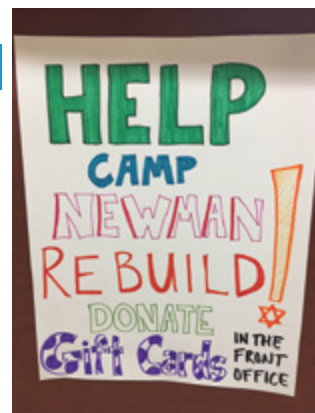 HELP
CAMP
NEWMAN
REBUILD!
DONATE
Gift Cards
IN THE
FRONT
OFFICE